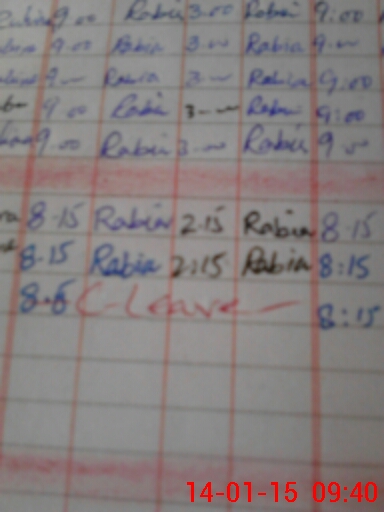 9.00 Rabia 3.00 Rabia 9:00
9.00 Rabia 3. Rabia 9.
9. Rabia 3. Rabia 9:00
9.00 Rabia 3. Rabia 9:00
9.00 Rabia 3. Rabia 9.00
8.15 Rabia 2.15 Rabia 8.15
8.15 Rabia 2:15 Rabia 8:15
C-Leave 8:15
14-01-15 09:40